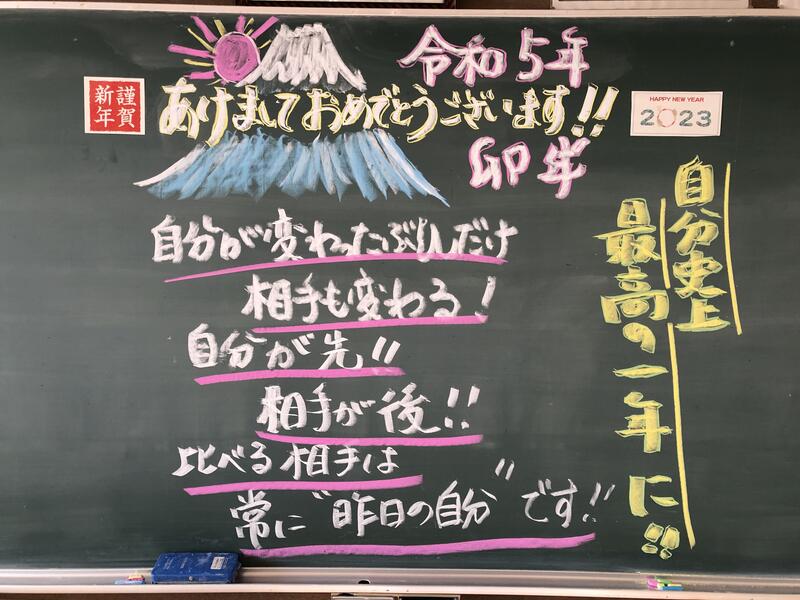 令和5年
謹賀
新年
あけましておめでとうございます!!
HAPPY NEW YEAR
2023
卯年
自分が変わったぶんだけ
相手も変わる!
自分が先!!
相手が後!!
比べる相手は
常に"昨日の自分"です!!
自分史上
最高の一年に!!